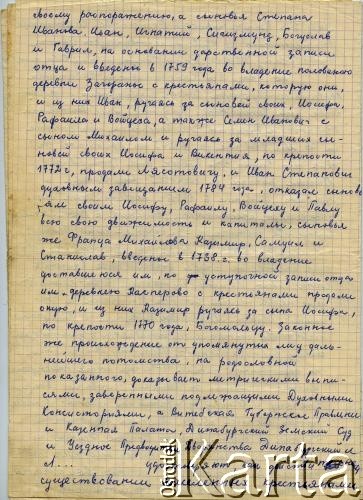 своему распоряжению, а сыновья Степана
Иванова Иван, Игнатий, Сигизмунд, Богуслав
и Гавриил, на основании дарственной записи
отца и введены в 1759 года во владение половиною
деревни с крестьянами, которую они,
и из них Иван, ручаясь за сыновей своих, Иосифа,
Рафаила и Войцеха, а также Семен Иванович с
сыном Михаилом и ручаясь за младших сы-
новей своих Иосифа и Викентия, по крепости
1772 г, продали и Иван Степанович
духовным завещанием 1784 года, отказал сыновь-
ям своим Иосифу, Рафаилу, Войцеху и Павлу
всю свою движимость и капиталы, сыновья
же Франца Михайлова Казимир, Самуил и
Станислав, введены в 1738 г. во владение
доставшеюся им, по уступочной записи отца
им деревнею с крестьянами продали
оную, и из них Казимир ручаясь за сына Иосифа,
по крепости 1770 года, Богомольцу. Законное
же происхождение от упомянутых лиц даль-
нейшего потомства, на родословной
показанного, доказывает метрическими выпи-
сями, заверенными подлежащими Духовными
Консисториями, а Витебская Губернское Правление
и Казенная Палата, Динабургский Земский Суд
и Уездное Дворянства
существовании крестьянами
Karta